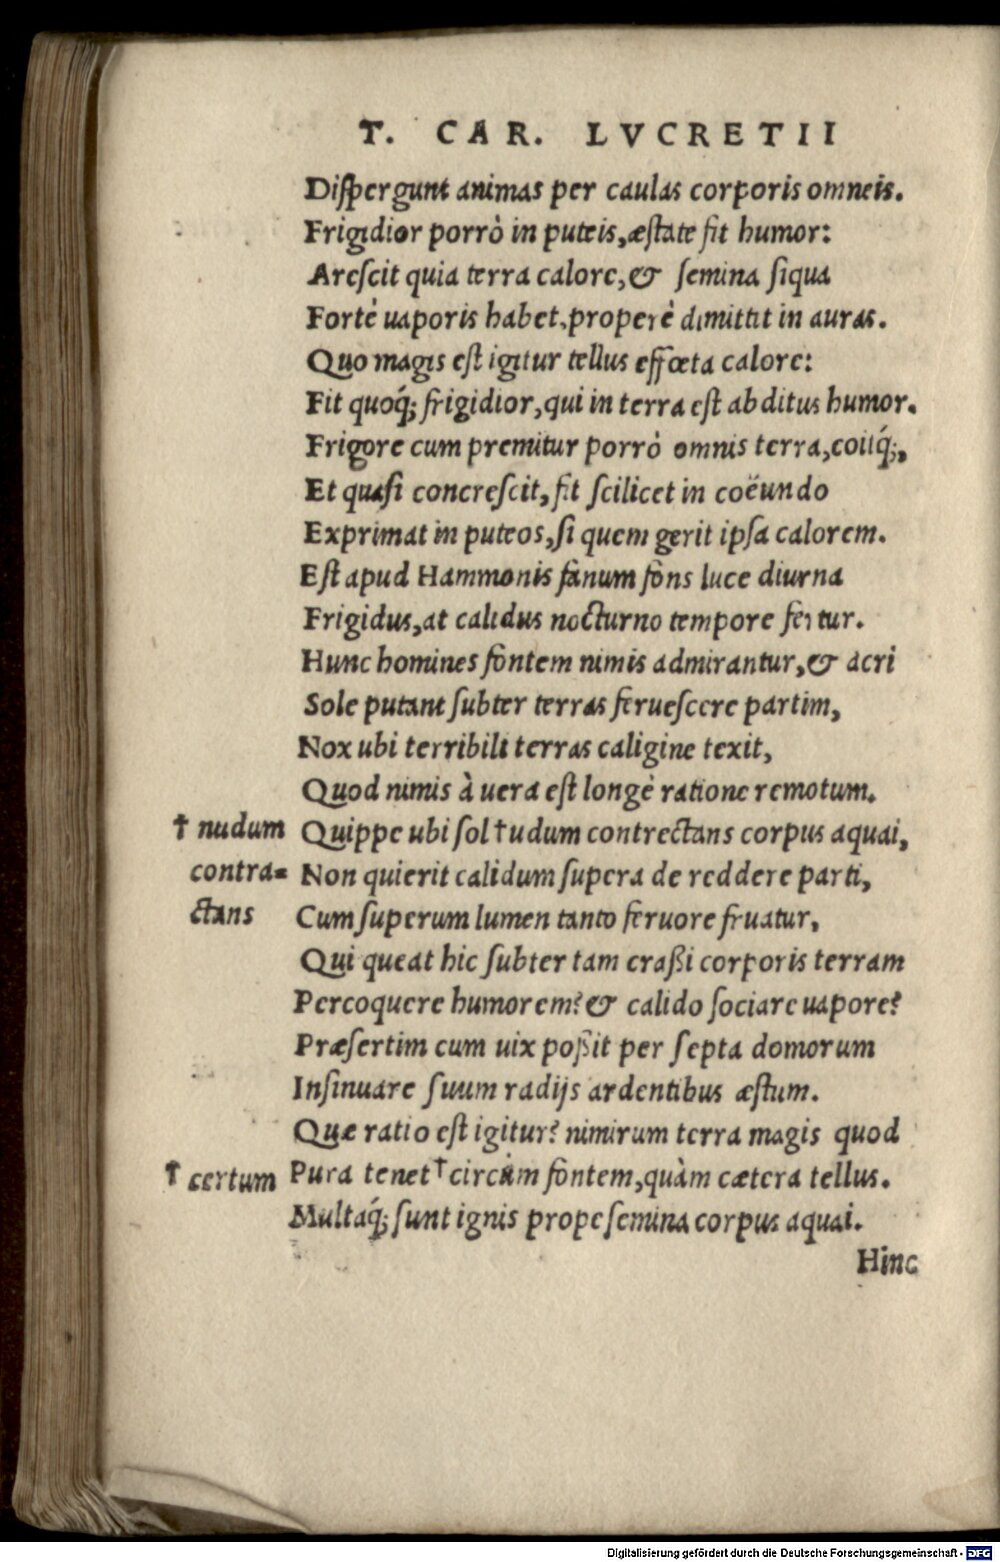 T. CAR. LVCRETII
Diſpergunt animas per caulas corporis omneis.
Frigidior porrò in puteis, æſtate fit humor:
Areſcit quia terra calore, & ſemina ſiqua
Fortè uaporis habet, properè dimittit in auras.
Quo magis eſt igitur tellus effœta calore:
Fit quoq́; frigidior, qui in terra eſt abditus humor.
Frigore cum premitur porrò omnis terra, coitq́;,
Et quaſi concreſcit, fit ſcilicet in coëundo
Exprimat in puteos, ſi quem gerit ipſa calorem.
Eſt apud Hammonis fanum fons luce diurna
Frigidus, at calidus nocturno tempore fertur.
Hunc homines fontem nimis admirantur, & acri
Sole putant ſubter terras ferueſcere partim,
Nox ubi terribili terras caligine texit,
Quod nimis à uera eſt longè ratione remotum.
† nudum Quippe ubi ſol † udum contrectans corpus aquai,
contra= Non quierit calidum ſupera de reddere parti,
ctans Cum ſuperum lumen tanto feruore fruatur,
Qui queat hic ſubter tam craßi corporis terram
Percoquere humorem? & calido ſociare uapore?
Præſertim cum uix poßit per ſepta domorum
Inſinuare ſuum radijs ardentibus æſtum.
Quæ ratio eſt igitur? nimirum terra magis quod
† certum Pura tenet † circùm fontem, quàm cætera tellus.
Multaq́; ſunt ignis prope ſemina corpus aquai.
Hinc
Digitalisierung gefördert durch die Deutsche Forschungsgemeinschaft - DFG